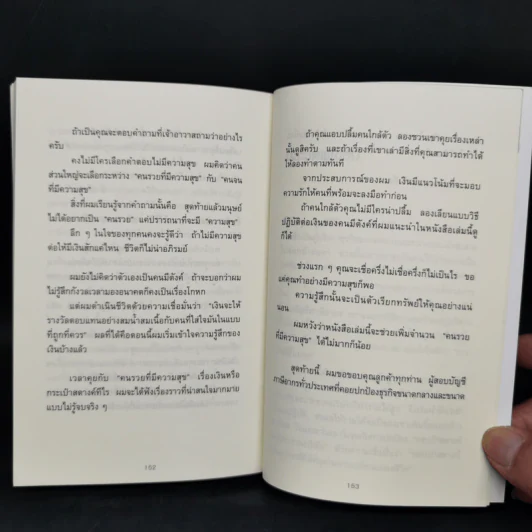 ถ้าเป็นคุณจะตอบคำถามที่เจ้าอาวาสถามว่าอย่างไร
ครับ
คงไม่มีใครเลือกคำตอบไม่มีความสุข ผมคิดว่าคน
ส่วนใหญ่จะเลือกระหว่าง "คนรวยที่มีความสุข" กับ "คนจน
ที่มีความสุข"
สิ่งที่ผมเรียนรู้จากคำถามนั้นคือ สุดท้ายแล้วมนุษย์
ไม่ได้อยากเป็น "คนรวย" แค่ปรารถนาที่จะมี "ความสุข"
ลึก ๆ ในใจของทุกคนคงจะรู้ดีว่า ถ้าไม่มีความสุข
ต่อให้มีเงินสักแค่ไหน ชีวิตก็ไม่น่าอภิรมย์
ผมยังไม่คิดว่าตัวเองเป็นคนมีตังค์ ถ้าจะบอกว่าผม
ไม่รู้สึกกังวลเวลามองอนาคตก็คงเป็นเรื่องโกหก
แต่ผมดำเนินชีวิตด้วยความเชื่อมั่นว่า "เงินจะให้
รางวัลตอบแทนอย่างสมน้ำสมเนื้อกับคนที่ใส่ใจมันในแบบ
ที่ถูกที่ควร" ผลที่ได้คือตอนนี้ผมเริ่มเข้าใจความรู้สึกของ
เงินบ้างแล้ว
เวลาคุยกับ "คนรวยที่มีความสุข" เรื่องเงินหรือ
กระเป๋าสตางค์ทีไร ผมจะได้ฟังเรื่องราวที่น่าสนใจมากมาย
แบบไม่รู้จบจริง ๆ
162
ถ้าคุณแอบปลื้มคนใกล้ตัว ลองชวนเขาคุยเรื่องเหล่า
นั้นดูสิครับ และถ้าเรื่องที่เขาเล่ามีสิ่งที่คุณสามารถทำได้
ให้ลองทำตามทันที
จากประสบการณ์ของผม เงินมีแนวโน้มที่จะมอบ
ความรักให้คนที่พร้อมจะลงมือทำก่อน
ถ้าคนใกล้ตัวคุณไม่มีใครน่าปลื้ม ลองเลียนแบบวิธี
ปฏิบัติต่อเงินของคนมีตังค์ที่ผมแนะนำในหนังสือเล่มนี้ดู
ก็ได้
ช่วงแรก ๆ คุณจะเชื่อครึ่งไม่เชื่อครึ่งก็ไม่เป็นไร ขอ
แค่คุณทำอย่างมีความสุขก็พอ
ความรู้สึกนั้นจะเป็นตัวเรียกทรัพย์ให้คุณอย่างแน่
นอน
ผมหวังว่าหนังสือเล่มนี้จะช่วยเพิ่มจำนวน "คนรวย
ที่มีความสุข" ได้ไม่มากก็น้อย
สุดท้ายนี้ ผมขอขอบคุณลูกค้าทุกท่าน ผู้สอบบัญชี
ภาษีอากรทั่วประเทศที่คอยปกป้องธุรกิจขนาดกลางและขนาด
163